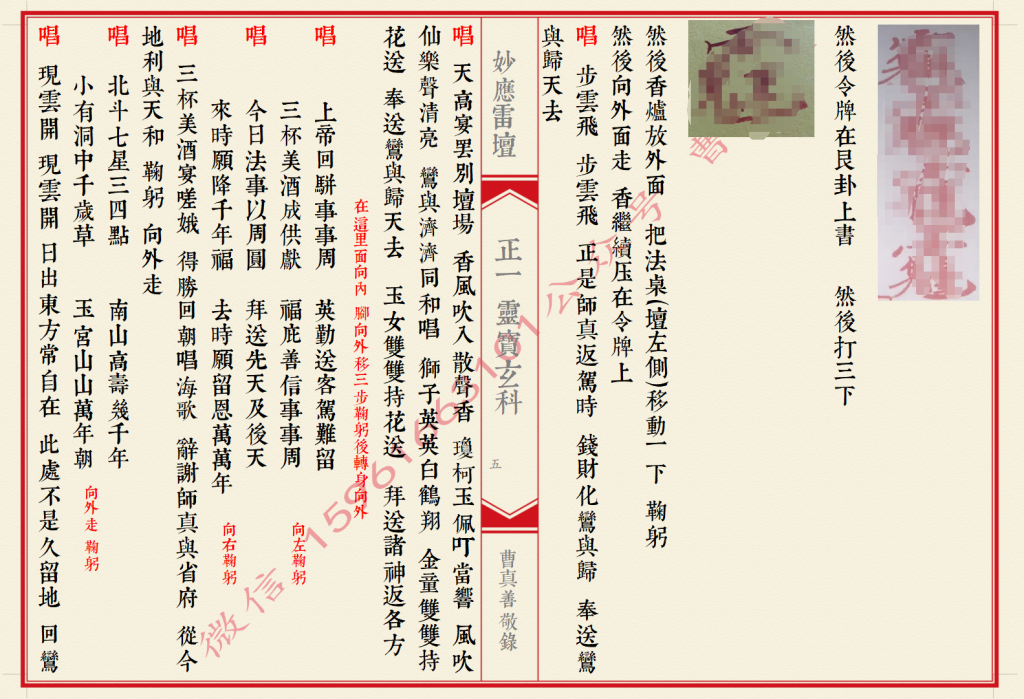 然後令牌在艮卦上書 然後打三下
然後香爐放外面 把法桌(壇左側)移動一下 鞠躬
然後向外面走 香繼續压在令牌上
唱 步雲飛 步雲飛 正是師真返駕時 錢財化鸞與歸 奉送鸞
與歸天去
妙應雷壇
正一靈寶玄科
五
曹真善敬錄
唱 天高宴罢別壇場 香風吹入散聲香 瓊柯玉佩叮當響 風吹
仙樂聲清亮 鸞與濟濟同和唱 獅子英英白鶴翔 金童雙雙持
花送 奉送鸞與歸天去 玉女雙雙持花送 拜送諸神返各方
在這里面向內 腳向外移三步鞠躬後轉身向外
唱 上帝回駢事事周 英勤送客駕難留
三杯美酒成供獻 福庇善信事事周 向左鞠躬
唱 今日法事以周圓 拜送先天及後天
來時願降千年福 去時願留恩萬萬年 向右鞠躬
唱 三杯美酒宴嗟娥 得勝回朝唱海歌 辭謝師真與省府 從今
地利與天和 鞠躬 向外走
唱 北斗七星三四點 南山高壽幾千年
小有洞中千歲草 玉宮山山萬年朝 向外走 鞠躬
唱 現雲開 現雲開 日出東方常自在 此處不是久留地 回鸞
微信 15961663101 公众号 曹